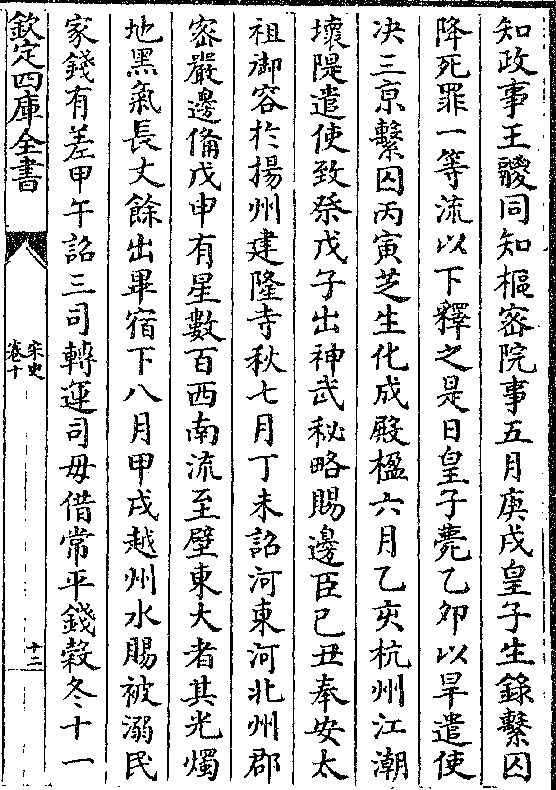 知政事王鬷同知樞密院事五月庚戌皇子生錄繫囚
降死罪一等流以下釋之是日皇子薨乙夘以旱遣使
决三京繫囚丙寅芝生化成殿楹六月乙亥杭州江潮
壞隄遣使致祭戊子出神武秘略賜邊臣己丑奉安太
祖御容於揚州建隆寺秋七月丁未詔河東河北州郡
密嚴邊備戊申有星數百西南流至壁東大者其光燭
地黑氣長丈餘出畢宿下八月甲戌越州水賜被溺民
家錢有差甲午詔三司轉運司毋借常平錢穀冬十一
欽定四庫全書
宋史
卷十
十二